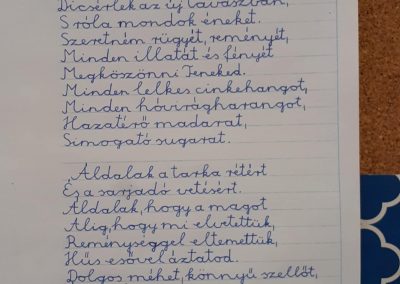 Dicsérlek az új tavaszban,
S róla mondok éneket.
Szeretném rügyét, reményét,
Minden illatát és fényét
Megköszönni Teneked.
Minden lelkes cinkehangot,
Minden hóvirágharangot,
Hazatérő madarat,
Simogató sugarat.
Áldalak a tarka rétért
És a sarjadó vetésért.
Áldalak, hogy a magot
Alig, hogy mi elvetettük,
Reménységgel eltemettük,
Hűs esővel áztatod.
Dolgos méhet, könnyű szellőt,